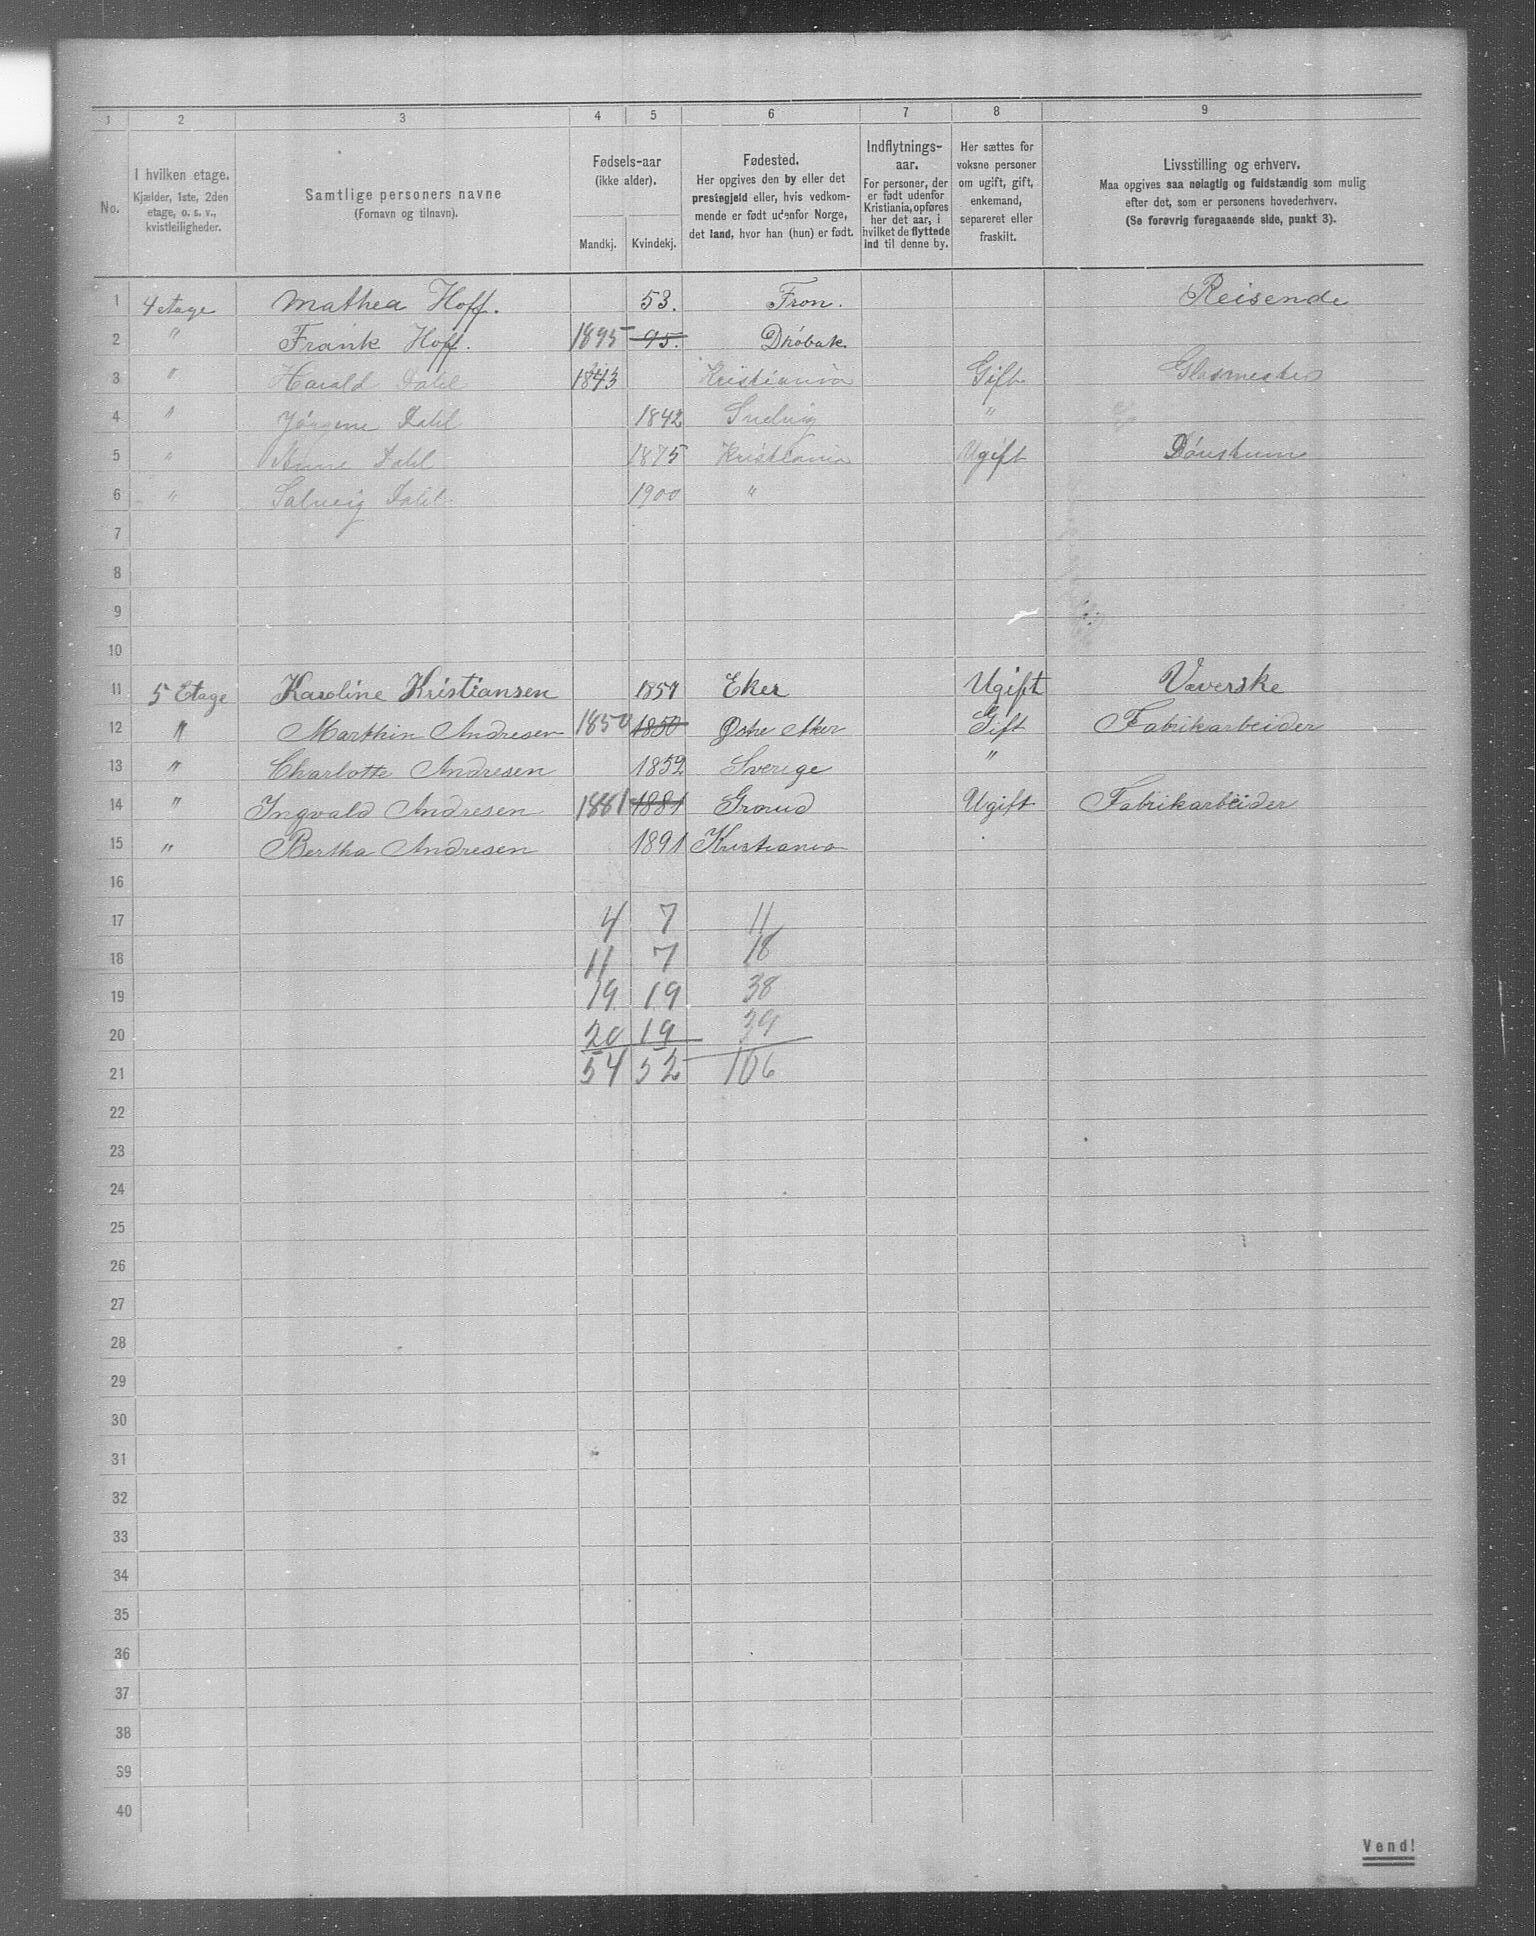 1 2 3 4 5 6 7 8 9
No.
I hvilken etage.
Kjælder, 1ste, 2den
etage, o. s. v.,
kvistleiligheder.
Samtlige personers navne
(Fornavn og tilnavn).
Fødsels-aar
(ikke alder).
Mandkj. Kvindekj.
Fødested.
Her opgives den by eller det
prestegjeld eller, hvis vedkom-
mende er født udenfor Norge,
det land, hvor han (hun) er født.
Indflytnings-
aar.
For personer, der
er født udenfor
Kristiania, opføres
her det aar, i
hvilket de flyttede
ind til denne by.
Her sættes for
voksne personer
om ugift, gift,
enkemand,
separeret eller
fraskilt.
Livsstilling og erhverv.
Maa opgives saa nøiagtig og fuldstændig som mulig
efter det, som er personens hovederhverv.
(Se forøvrig foregaaende side, punkt 3).
1 4 etage Mathea Hoff. 53. Fron. Reisende
2 " Frank Hoff. 1895 95. Drøbak
3 " Harald Dahl 1843 Kristiania Gift Glasmester
4 " Jørgine Dahl 1842 Svelvig "
5 " Anne Dahl 1875 Kristiania Ugift
6 " Solveig Dahl 1900 "
7
8
9
10
11 5 Etage Karoline Kristiansen 1857 Eker Ugift Væverske
12 " Marthin Andresen 1850 1850 Østre Aker Gift Fabrikarbeider
13 " Charlotte Andresen 1852 Sverige "
14 " Ingvald Andresen 1881 1881 Grorud Ugift Fabrikarbeider
15 " Bertha Andresen 1891 Kristiania
16
17 4 7 11
18 11 7 18
19 19 19 38
20 20 19 39
21 54 52 106
22
23
24
25
26
27
28
29
30
31
32
33
34
35
36
37
38
39
40
Vend!